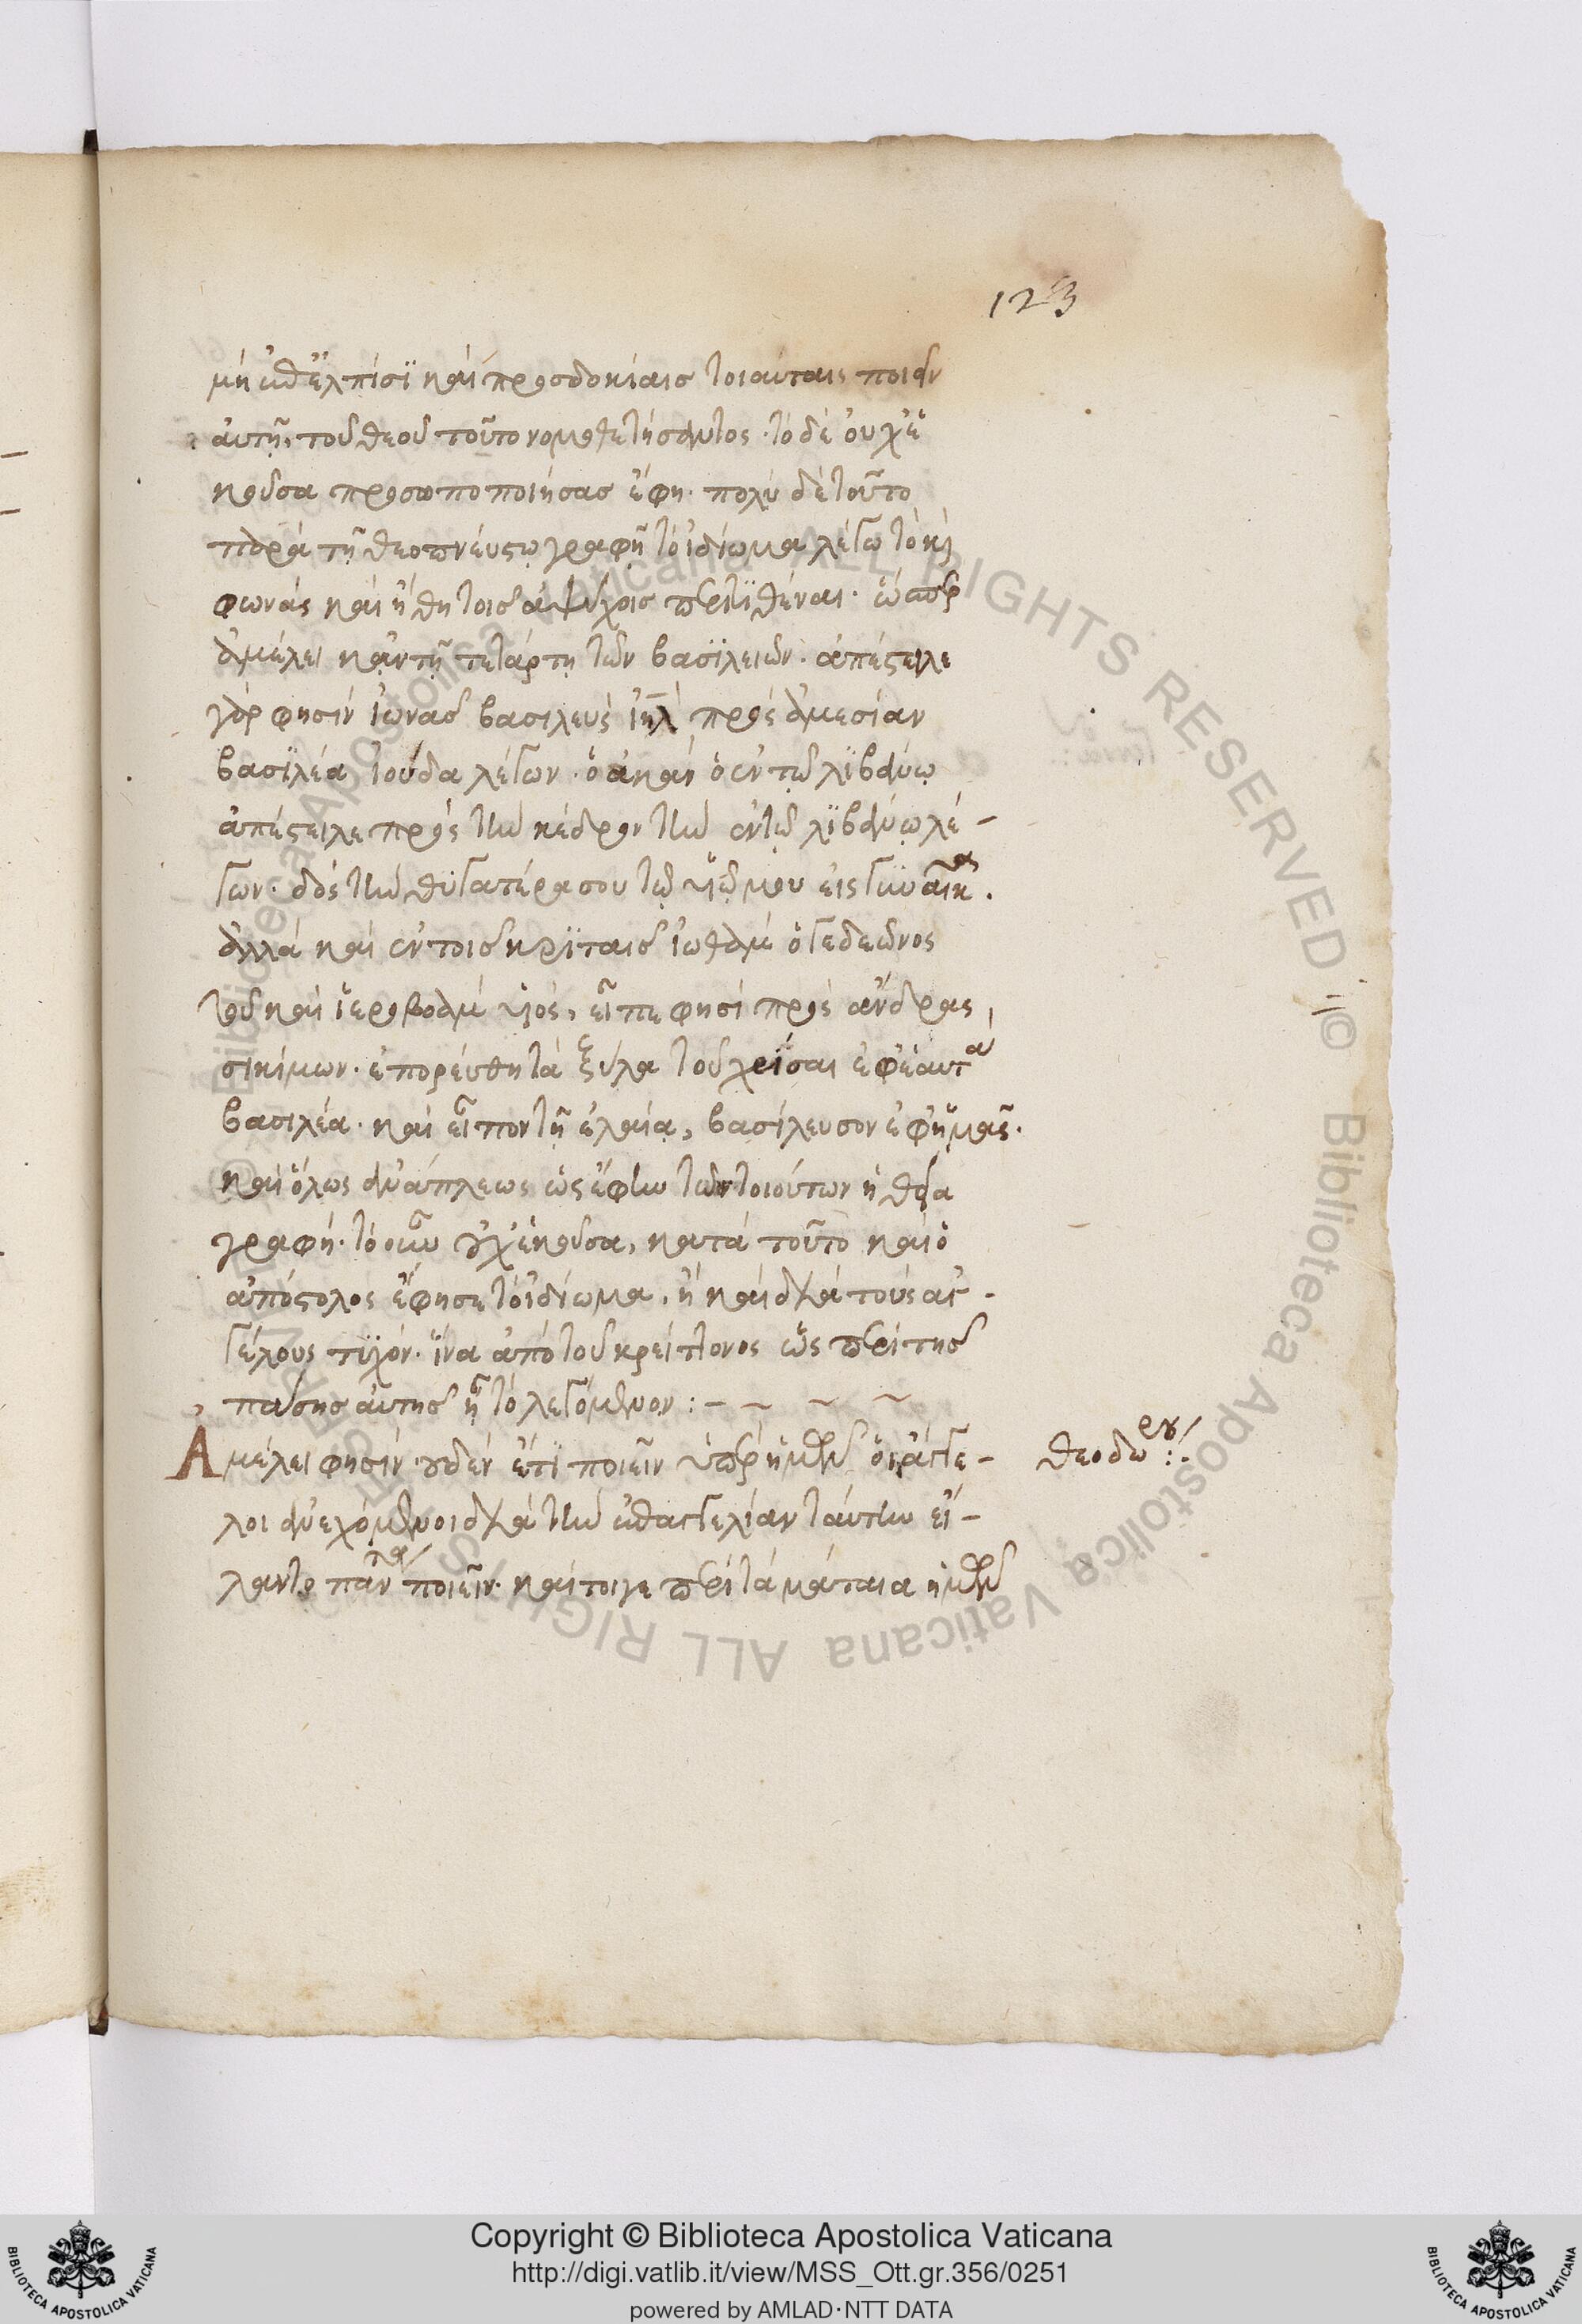 123
μὴ ἐπ' ἐλπίσϊ καὶ προσδοκίαις τοιαύταις ποιεῖν
αὐτῇ, τοῦ θεοῦ τοῦτο νομοθετήσαντος· τὸ δὲ οὐχ ἑ
κοῦσα προσωποποιήσας ἔφη· πολὺ δὲ τοῦτο
παρὰ τῇ θεοπνεύστῳ γραφῇ τὸ ἰδίωμα λέγω τὸ καὶ
φωνὰς καὶ ἤθη τοῖς ἀψύχοις περιτϊθέναι· ὥσπερ
ἀμέλει κἀν τῇ τετάρτῃ τῶν βασϊλειῶν· ἀπέστειλε
γὰρ φησὶν ἰωνὰς βασιλεὺς ἰηλ πρὸς ἀμεσίαν
βασϊλέα ἰούδα λέγων· ὁ ἀκὰν ὁ ἐν τῷ λϊβάνῳ
ἀπέστειλε πρὸς τὴν κέδρον τὴν ἐν τῷ λϊβάνῳ λέ-
γων· δὸς τὴν θϋγατέρα σου τῷ υἱῷ μου εἰς γϋναῖκα.
ἀλλὰ καὶ ἐν τοῖς κρϊταῖς ἰωθὰμ ὁ γεδεῶνος
τοῦ καὶ ἱεροβοὰμ υἱὸς, εἶπε φησὶ πρὸς ἄνδρας
σικίμων· ἐπορεύθη τὰ ξύλα τοῦ χρῖσαι ἐφ' ἑαυτὰ
βασιλέα· καὶ εἶπον τῇ ἐλαίᾳ, βασίλευσον ἐφ' ἡμᾶς·
καὶ ὅλως ἀνάπλεως ὡς ἔφην τῶν τοιούτων ἡ θεία
γραφή· τὸ οὖν οὐχ ἑκοῦσα, κατὰ τοῦτο καὶ ὁ
ἀπόστολος ἔφησε τὸ ἰδίωμα· ἢ καὶ διὰ τοὺς ἀγ-
γέλους τϋχόν· ἵνα ἀπὸ τοῦ κρείττονος ὡς περὶ τῆς
πάσης αὐτῆς ᾖ τὸ λεγόμενον :- ~ ~ ~
Ἀμέλει φησὶν οὐδὲν ἔτϊ ποιεῖν ὑπὲρ ἡμῶν οἱ ἄγγε-
λοι ἀνεχόμενοι διὰ τὴν ἐπαγγελίαν ταύτην εἵ-
λαντο πάντα ποιεῖν· καίτοιγε περὶ τὰ μάταια ἡμῶν
θεοδώρου :·
Copyright © Biblioteca Apostolica Vaticana
http://digi.vatlib.it/view/MSS_Ott.gr.356/0251
powered by AMLAD·NTT DATA